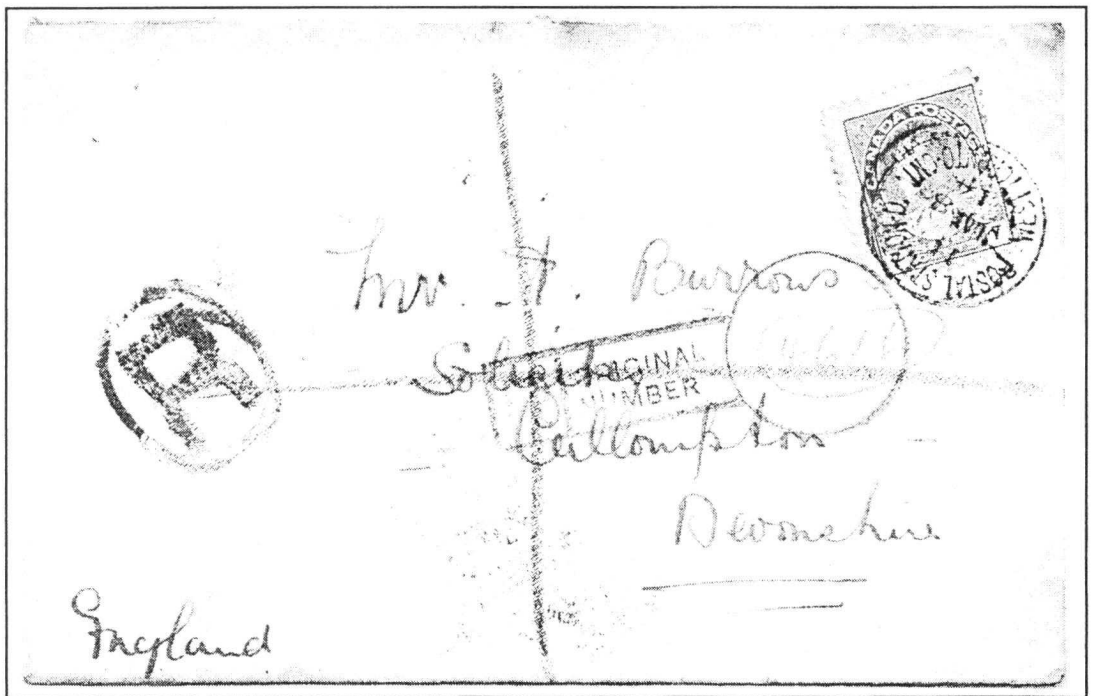 CANADA POSTAGE
POSTAL STATION
Mr. F. Burrows
Solicitor
ORIGINAL
NUMBER
Cullompton
Devonshire
England
R